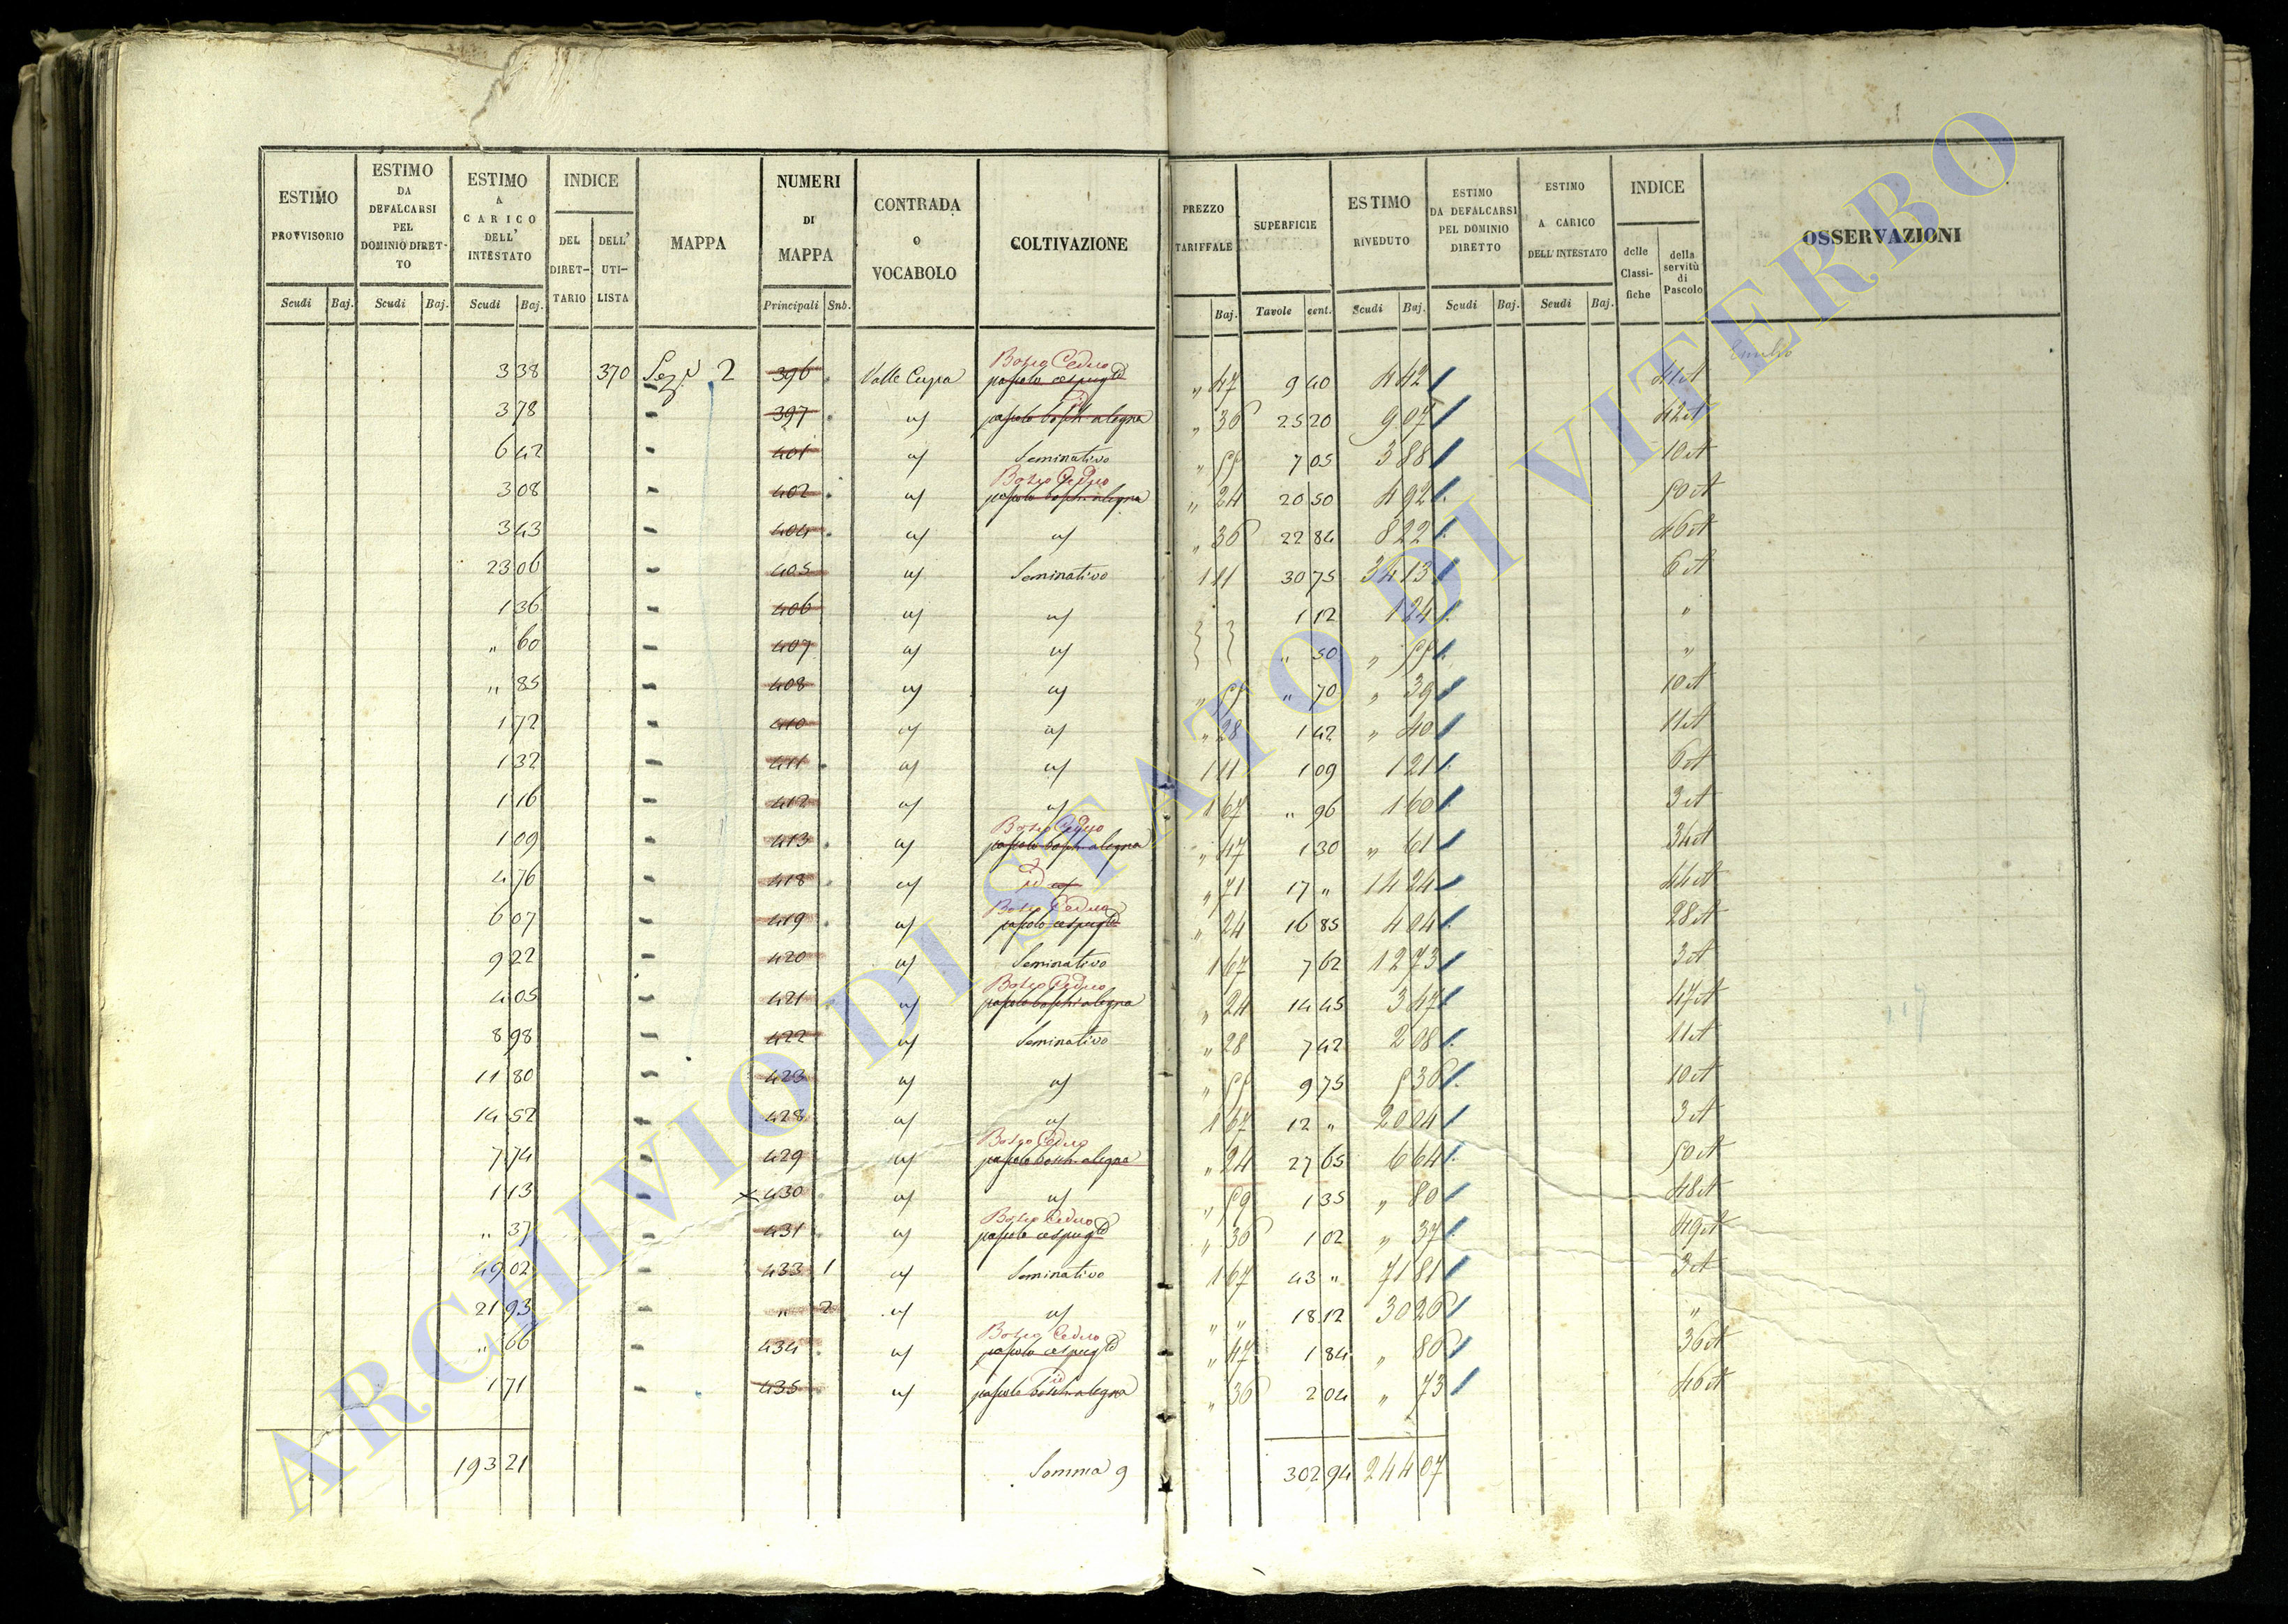 ESTIMO PROVVISORIO | ESTIMO DA DEFALCARSI PEL DOMINIO DIRET- TO | ESTIMO A CARICO DELL' INTESTATO | INDICE | MAPPA | NUMERI DI MAPPA | CONTRADA O VOCABOLO | COLTIVAZIONE | PREZZO TARIFFALE | SUPERFICIE | ESTIMO RIVEDUTO | ESTIMO DA DEFALCARSI PEL DOMINIO DIRETTO | ESTIMO A CARICO DELL' INTESTATO | INDICE | OSSERVAZIONI
DEL DIRET- TARIO | DELL' UTI- LISTA | delle Classi- fiche | della servitù di Pascolo
Scudi | Baj. | Scudi | Baj. | Scudi | Baj. | Principali | Sub. | Baj. | Tavole | cent. | Scudi | Baj. | Scudi | Baj. | Scudi | Baj.
Bosco Ceduo
3 38 | 370 | 2 | 396 | Valle Cupa | pascolo cespugto | " 47 | 9 40 | 4 42 | 41
3 78 | " | 397 | pascolo bosch. a legna | " 36 | 25 20 | 9 07 | 42
6 42 | " | 401 | Seminativo | " 55 | 7 05 | 3 88 | 10
Bosco Ceduo
3 08 | " | 402 | pascolo bosch. a legna | " 24 | 20 50 | 4 92 | 50
3 43 | " | 404 | " 36 | 22 84 | 8 22 | 46
23 06 | " | 405 | Seminativo | 1 11 | 30 75 | 34 13 | 6
1 36 | " | 406 | 1 12 | 1 24 | "
" 60 | " | 407 | " 50 | " 55 | "
" 85 | " | 408 | " 55 | " 70 | " 39 | 10
1 72 | " | 410 | " 28 | 1 42 | " 40 | 11
1 32 | " | 411 | 1 11 | 1 09 | 1 21 | 6
1 16 | " | 412 | 1 67 | " 96 | 1 60 | 3
Bosco Ceduo
1 09 | " | 413 | pascolo bosch. a legna | " 47 | 1 30 | " 61 | 34
4 76 | " | 418 | id | " 71 | 17 " | 14 24 | 44
Bosco Ceduo
6 07 | " | 419 | pascolo cespugto | " 24 | 16 85 | 4 04 | 28
9 22 | " | 420 | Seminativo | 1 67 | 7 62 | 12 73 | 3
Bosco Ceduo
4 05 | " | 421 | pascolo bosch. a legna | " 24 | 14 45 | 3 47 | 47
8 98 | " | 422 | Seminativo | " 28 | 7 42 | 2 08 | 11
11 80 | " | 423 | " 55 | 9 75 | 5 36 | 10
14 52 | " | 428 | 1 67 | 12 " | 20 04 | 3
Bosco Ceduo
7 74 | " | 429 | pascolo bosch. a legna | " 24 | 27 65 | 6 64 | 50
1 13 | " | × 430 | " 59 | 1 35 | " 80 | 48
Bosco Ceduo
" 37 | " | 431 | pascolo cespugto | " 36 | 1 02 | " 37 | 49
49 02 | " | 433 | 1 | Seminativo | 1 67 | 43 " | 71 81 | 3
21 93 | " | " | 2 | " " | 18 12 | 30 26 | "
Bosco Ceduo
" 66 | " | 434 | pascolo cespugto | " 47 | 1 84 | " 86 | 36
1 71 | " | 435 | pascolo bosch. a legna | " 36 | 2 04 | " 73 | 46
193 21 | Somma | 302 94 | 244 07
ARCHIVIO DI STATO DI VITERBO